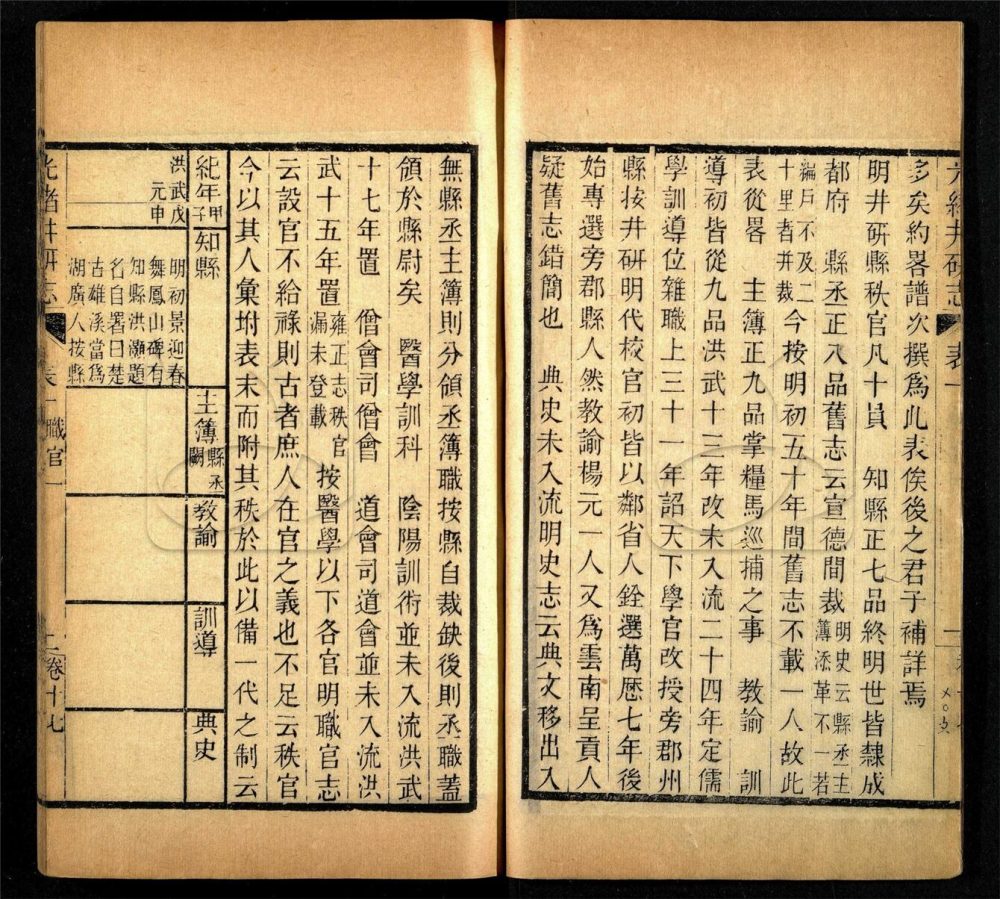 多矣約畧譜次撰爲此表俟後之君子補詳焉
明井研縣秩官凡十員　知縣正七品終明世皆隸成
都府　縣丞正八品舊志云宣德間裁明史云縣丞主
簿添革不一若
編戶不及二
十里者并裁今按明初五十年間舊志不載一人故此
表從畧　主簿正九品掌糧馬巡捕之事　教諭　訓
導初皆從九品洪武十三年改未入流二十四年定儒
學訓導位雜職上三十一年詔天下學官改授旁郡州
縣按井研明代校官初皆以鄰省人銓選萬歷七年後
始專選旁郡縣人然教諭楊元一人又爲雲南呈貢人
疑舊志錯簡也　典史未入流明史志云典文移出入
無縣丞主簿則分領丞簿職按縣自裁缺後則丞職蓋
領於縣尉矣　醫學訓科　陰陽訓術並未入流洪武
十七年置　僧會司僧會　道會司道會並未入流洪
武十五年置雍正志秩官
漏未登載按醫學以下各官明職官志
云設官不給祿則古者庶人在官之義也不足云秩官
今以其人彙坿表末而附其秩於此以備一代之制云
紀年甲子
知縣
主簿縣丞
闕
教諭
訓導
典史
洪武戊
元申
明初景迎春
舞鳳山碑有
知縣洪灝題
名自署曰楚
古雄溪當爲
湖廣人按縣
光緒井研志
表一職官一
卷十七